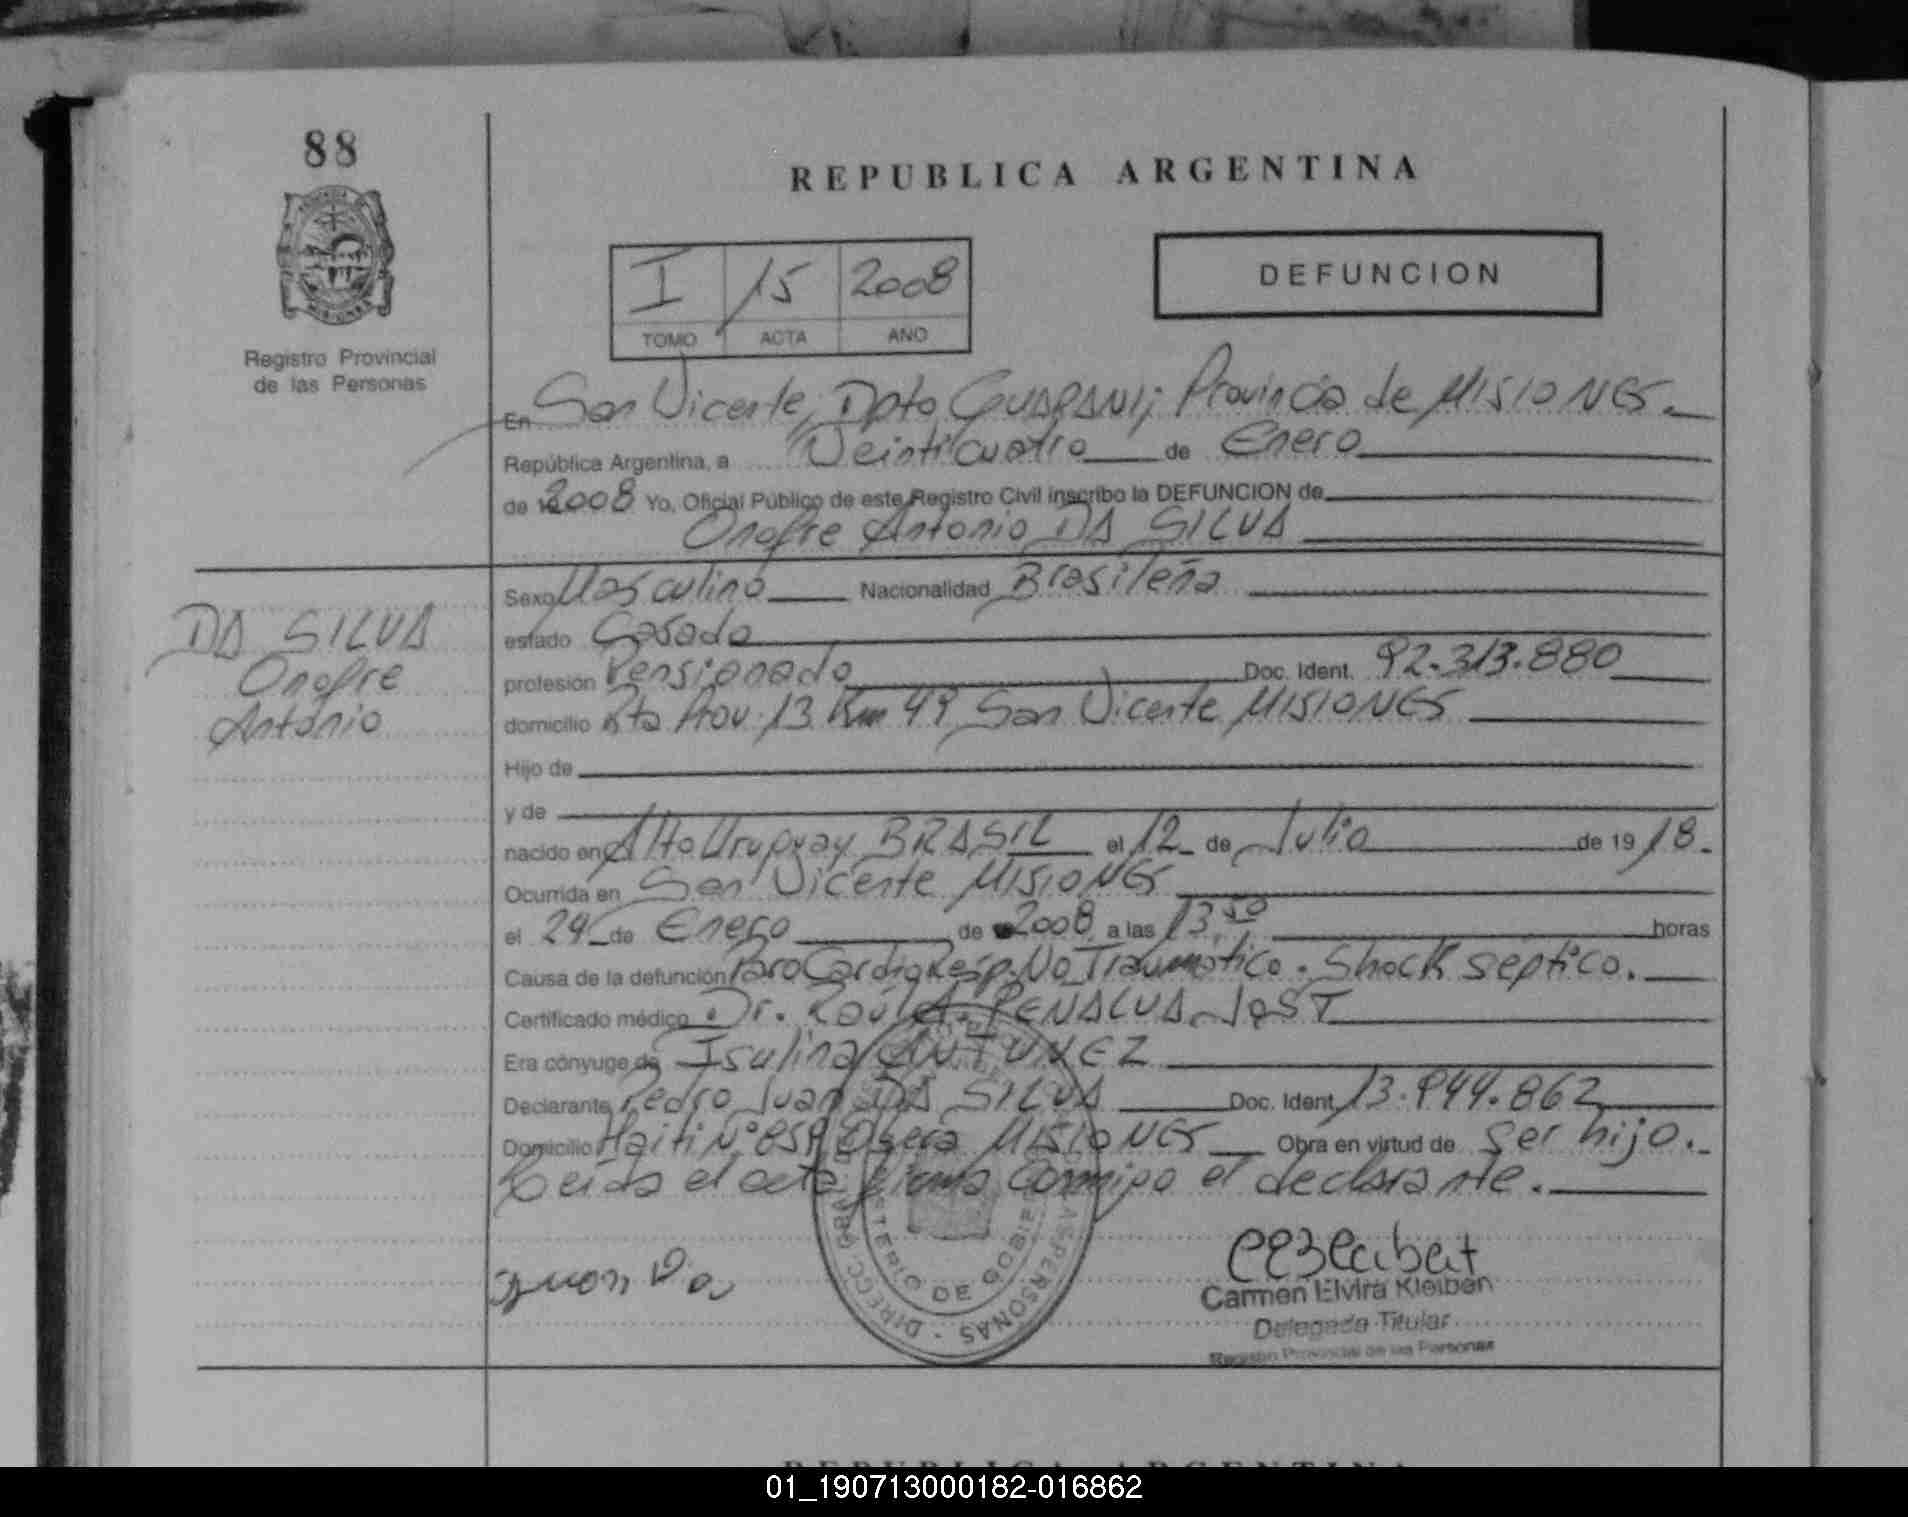 88
REPUBLICA ARGENTINA
I 15 2008
TOMO ACTA AÑO
DEFUNCION
Registro Provincial
de las Personas
En San Vicente, Dpto GUARANI; Provincia de MISIONES.
República Argentina, a Veinticuatro de Enero
de 2008 Yo, Oficial Público de este Registro Civil inscribo la DEFUNCION de
Onofre Antonio DA SILVA
DA SILVA
Onofre
Antonio
Sexo Masculino Nacionalidad Brasileña
estado Casado
profesión Pensionado Doc. Ident. 92.313.880
domicilio Rta Prov. 13 Km 49 San Vicente MISIONES
Hijo de
y de
nacido en Alto Uruguay BRASIL el 12 de Julio de 1918.
Ocurrida en San Vicente MISIONES
el 24 de Enero de 2008 a las 13,50 horas
Causa de la defunción Paro Cardio Resp. No Traumatico. Shock septico.
Certificado médico Dr. Raúl A. PENALVA JOST
Era cónyuge de Isulina ANTUNEZ
Declarante Pedro Juan DA SILVA Doc. Ident. 13.944.862
Domicilio Haiti N° 859 Obera MISIONES Obra en virtud de ser hijo.
Leida el acta firma conmigo el declarante.
Juan Da
MINISTERIO DE GOBIE
DIRECC. GRAL. PERSONAS
Carmen Elvira Kleiben
Delegada Titular
Registro Provincial de las Personas
REPUBLICA ARGENTINA
01_190713000182-016862